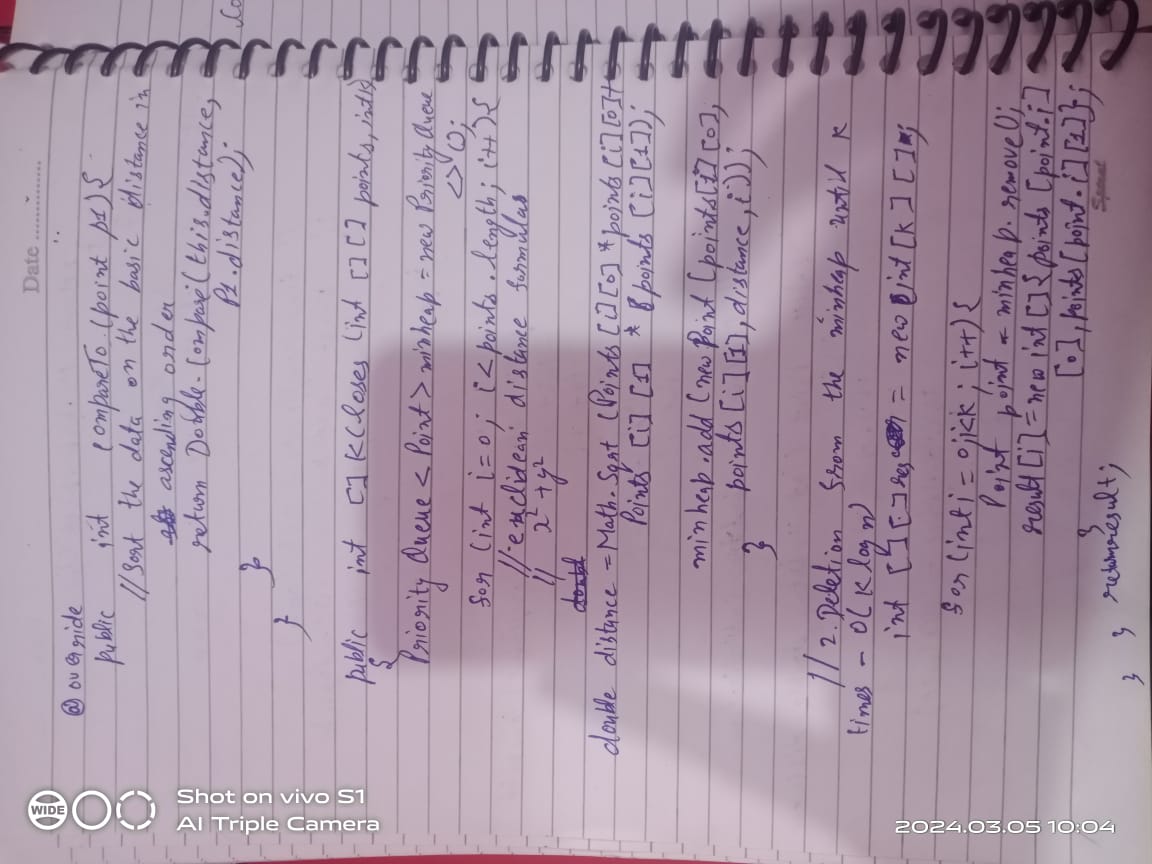 Date
@override
public int compareTo (point p1) {
//Sort the data on the basic distance in
ascending order
return Double.Compare(this.distance,
P1.distance);
}
}
public int [] KCloses (int [][] points, int k)
{
Priority Queue < Point > minheap = new Priority Queue
<> ();
for (int i = 0; i < points.length; i++) {
// euclidean distance formulas
// x² + y²
double distance = Math.Sqrt (Points [i][0] * points [i][0] +
Points [i][1] * points [i][1]);
minheap.add (new Point (points[i][0],
points[i][1], distance, i));
}
// 2. Deletion from the minheap until K
times - O(K log n)
int [][] = new int [K][];
for (int i = 0; i<K; i++) {
Point point = minheap.remove();
result[i] = new int [] {points [point.i]
[0], points [point.i][1]};
}
return result;
}
}
WIDE
Shot on vivo S1
AI Triple Camera
2024.03.05 10:04